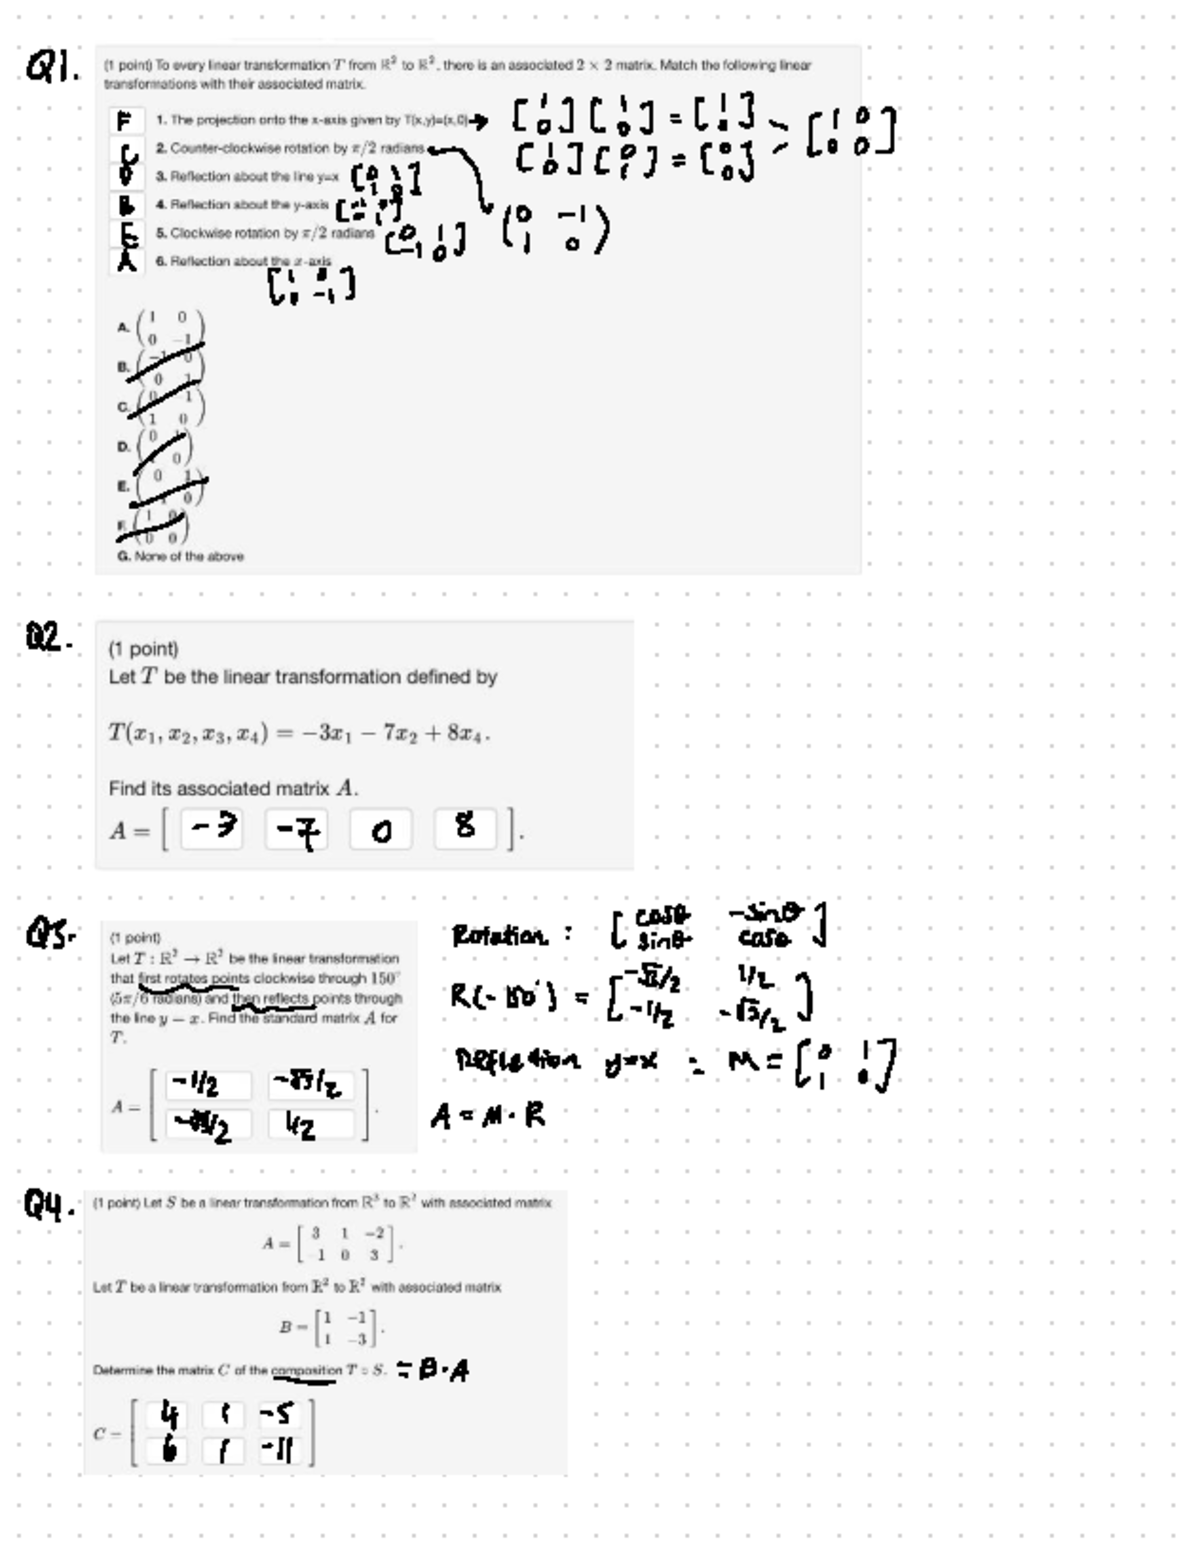 Q1.
(1 point) To every linear transformation T from ℝ² to ℝ², there is an associated 2 × 2 matrix. Match the following linear
transformations with their associated matrix.
F 1. The projection onto the x-axis given by T(x,y)=(x,0) → [1 0] [1 0] = [1 0] > [1 0 0 0]
C 2. Counter-clockwise rotation by π/2 radians [1 0] [0 1] = [0 0]
D 3. Reflection about the line y=x [0 1 1 0]
B 4. Reflection about the y-axis
E 5. Clockwise rotation by π/2 radians [0 1 -1 0] (0 -1 1 0)
A 6. Reflection about the x-axis
[1 0 0 -1]
A. (1 0 0 -1)
B. (-1 0 0 1)
C. ( -1 1 0)
D. (0 0)
E. (0 1 0)
F. (1 0 0 0)
G. None of the above
Q2.
(1 point)
Let T be the linear transformation defined by
T(x₁, x₂, x₃, x₄) = −3x₁ − 7x₂ + 8x₄.
Find its associated matrix A.
A = [ -3 -7 0 8 ].
Q3.
(1 point)
Let T : ℝ² → ℝ² be the linear transformation
that first rotates points clockwise through 150°
(5π/6 radians) and then reflects points through
the line y = x. Find the standard matrix A for
T.
A = [ -1/2 -√3/2
-√3/2 1/2 ].
Rotation : [cosθ -sinθ
sinθ cosθ]
R(-150°) = [-√3/2 1/2
-1/2 -√3/2]
Reflection y=x : M = [0 1
1 0]
A = M · R
Q4.
(1 point) Let S be a linear transformation from ℝ³ to ℝ² with associated matrix
A = [ 3 1 −2
-1 0 3 ].
Let T be a linear transformation from ℝ² to ℝ² with associated matrix
B = [ 1 −1
1 −3 ].
Determine the matrix C of the composition T ∘ S. = B·A
C = [ 4 1 -5
6 1 -11 ]